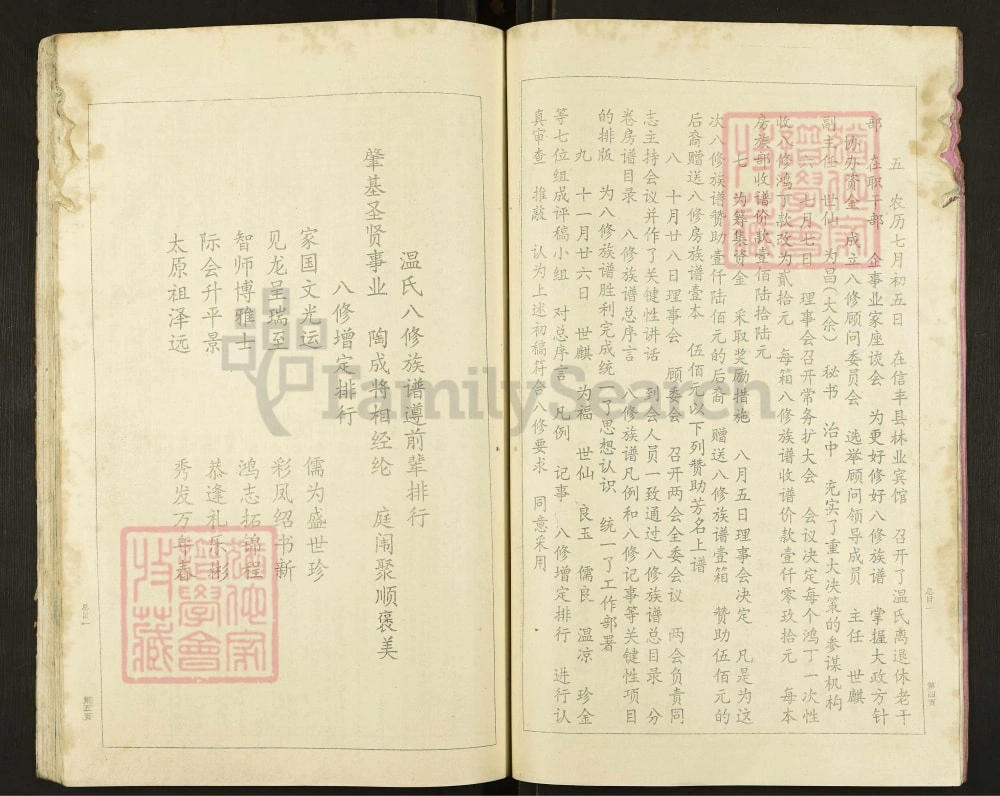 五 农历七月初五日 在信丰县林业宾馆 召开了温氏离退休老干
部 在职干部 企事业家座谈会 为更好修好八修族谱 掌握大政方针
协办资金 成立八修顾问委员会 选举顾问领导成员 主任 世麒
副主任 世仙 为昌(大余) 秘书 治中 充实了重大决策的参谋机构
六 七月七日 理事会召开常务扩大会 会议决定每个鸿丁一次性
收八修鸿丁款改为贰拾元 每箱八修族谱收谱价款壹仟零玖拾元 每本
房族部收谱价款壹佰陆拾陆元
七 为筹集资金 采取奖励措施 八月五日理事会决定 凡是为这
次八修族谱赞助壹仟陆佰元的后裔 赠送八修族谱壹箱 赞助伍佰元的
后裔赠送八修房族谱壹本 伍佰元以下列赞助芳名上谱
八 十月廿八日理事会 顾委会 召开两会全委会议 两会负责同
志主持会议并作了关键性讲话 到会人员一致通过八修族谱总目录 分
卷房谱目录 八修族谱总序言 八修族谱凡例和八修记事等关键性项目
的排版 为八修族谱胜利完成统一了思想认识 统一了工作部署
九 十一月廿六日 世麒 为福 世仙 良玉 儒良 温凉 珍金
等七位组成评稿小组 对总序言 凡例 记事 八修增定排行 进行认
真审查 推敲 认为上述初稿符合八修要求 同意采用
总目一
第四页
温氏八修族谱遵前辈排行
肇基圣贤事业 陶成将相经纶 庭闱聚顺褒美
八修增定排行
家国文光运 儒为盛世珍
见龙呈瑞至 彩凤绍书新
智师博雅士 鸿志拓锦程
际会升平景 恭逢礼乐彬
太原祖泽远 秀发万年春
总目一
第五页
FamilySearch